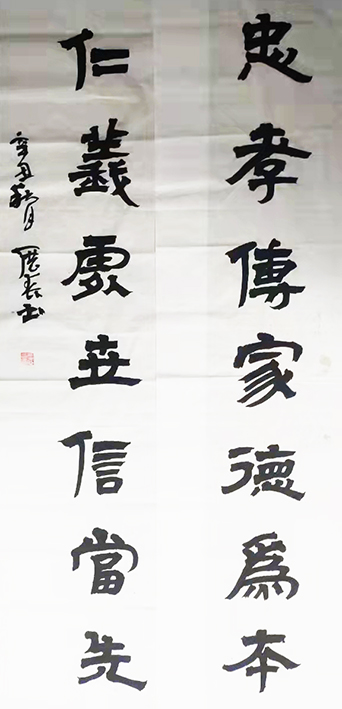 忠孝傳家德爲本
仁義處世信當先
辛丑秋月
書